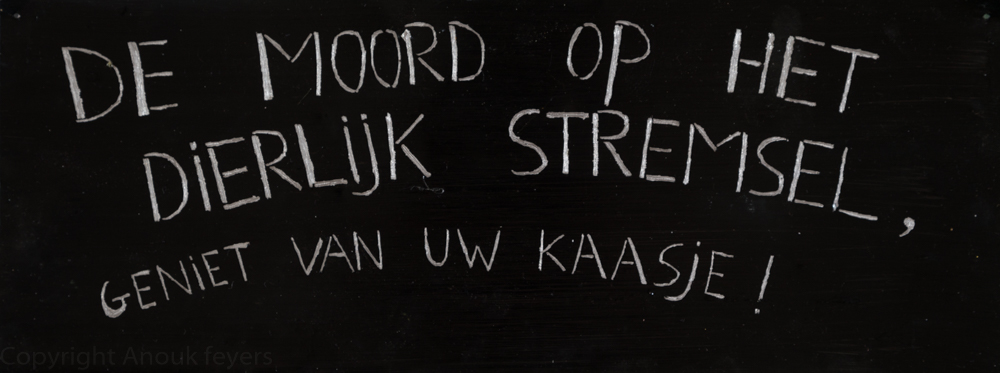 DE MOORD OP HET
DiERLijK STREMSEL,
GENiET VAN UW KAASjE!
Copyright Anouk feyers